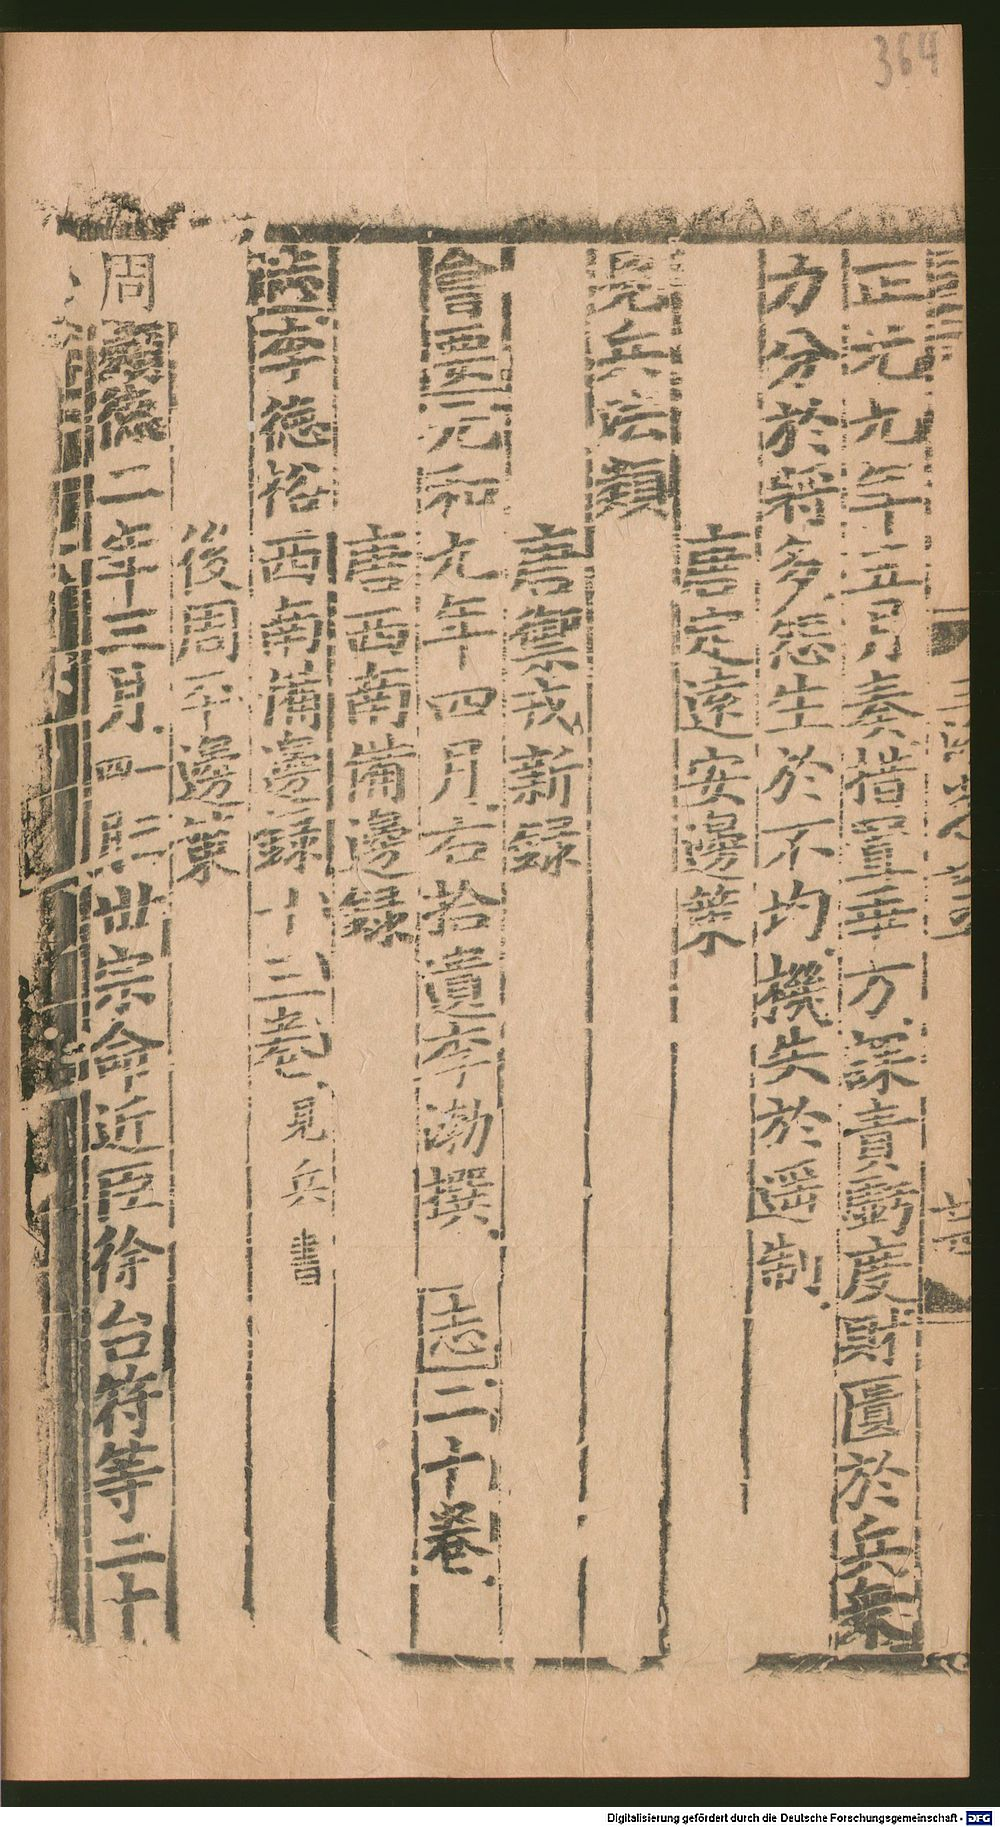 364
正元九年五月奏措置乖方課責虧度財匱於兵衆
力分於將多怨生於不均機失於遥制
唐定遠安邊策
見兵法類
唐禦戎新録
會要元和九年四月右拾遺李渤撰 志二十卷
唐西南備邊録
志李德裕西南備邊録十三卷見兵書
後周平邊策
周顯德二年三月四一 世宗命近臣徐台符等二十
Digitalisierung gefördert durch die Deutsche Forschungsgemeinschaft - DFG